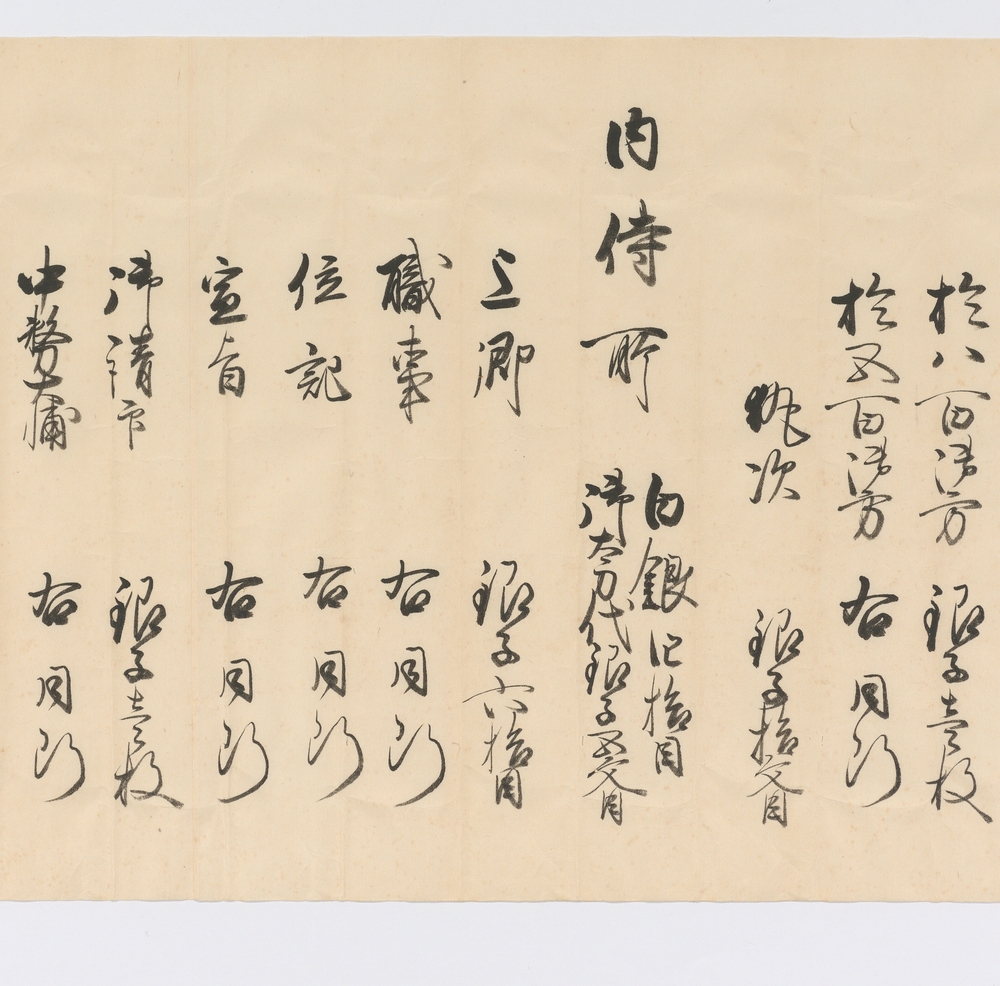 於八百御方 銀子壱枚
於五百御方 右同断
執次 銀子拾文目
内侍所
白銀 拾目
御太刀代銀子五文目
上卿 銀子六拾目
職事 右同断
位記 右同断
宣旨 右同断
御請印 銀子壱枚
中務大輔 右同断